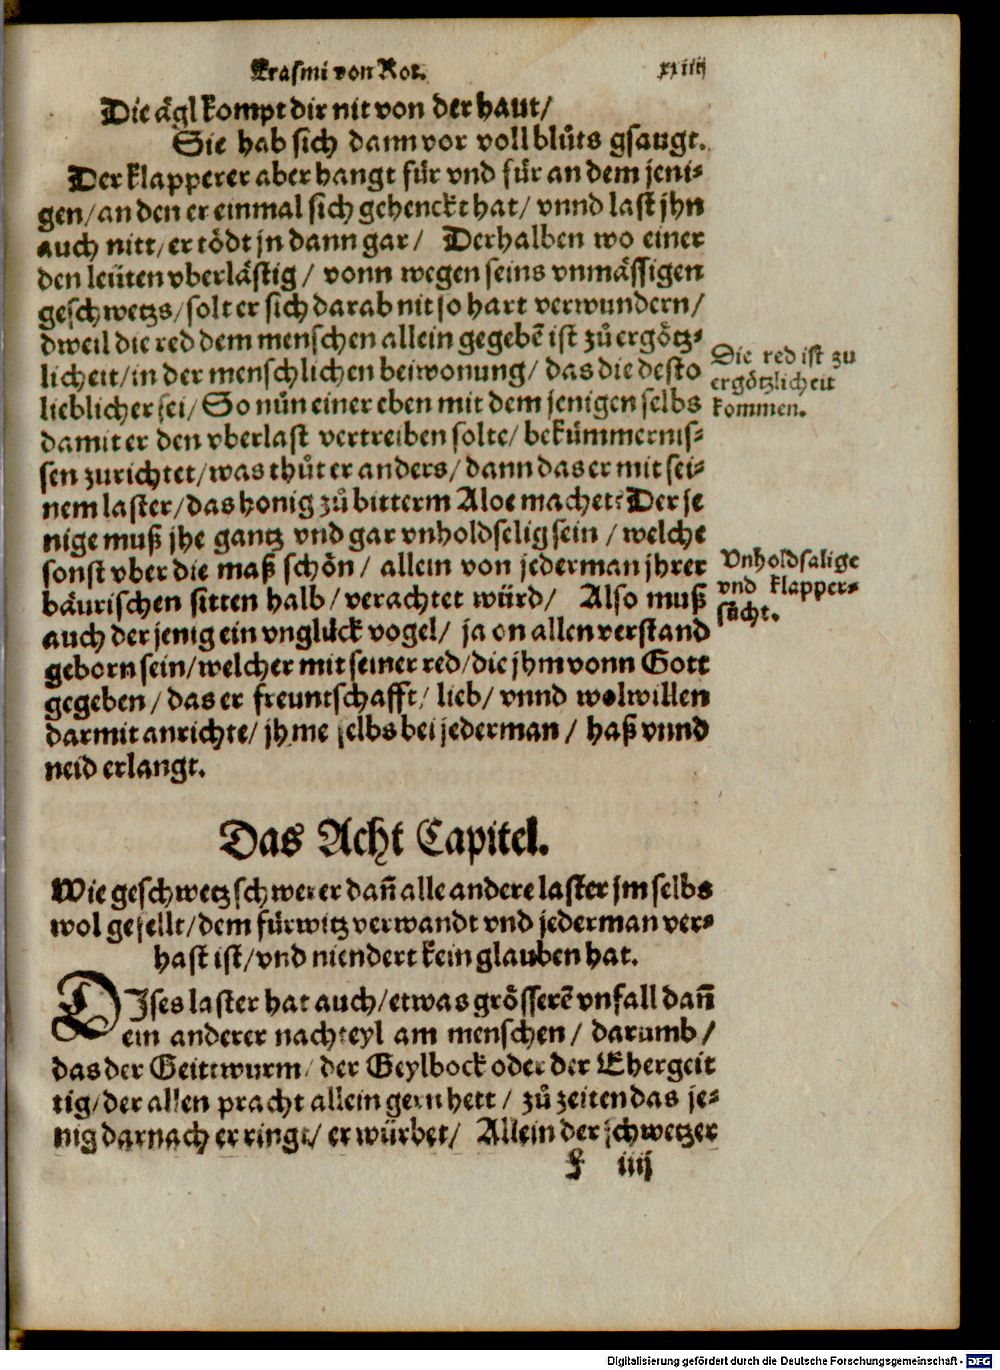 Erasmi von Rot. xxiiij
Die ägl kompt dir nit von der haut/
Sie hab sich dann vor voll blůts gsaugt.
Der klapperer aber hangt für vnd für an dem jeni-
gen/ an den er einmal sich gehenckt hat/ vnnd last jhn
auch nitt/ er tödt jn dann gar/ Derhalben wo einer
den leüten vberlästig/ vonn wegen seins vnmässigen
geschwetzs/ solt er sich darab nit so hart verwundern/
dweil die red dem menschen allein gegebẽ ist zů ergötz-
licheit/ in der menschlichen beiwonung/ das die desto
lieblicher sei/ So nůn einer eben mit dem jenigen selbs
damit er den vberlast vertreiben solte/ bekümmernis-
sen zurichtet/ was thůt er anders/ dann das er mit sei-
nem laster/ das honig zů bitterm Aloe machet? Der je
nige muß jhe gantz vnd gar vnholdselig sein/ welche
sonst vber die maß schön/ allein von jederman jhrer
bäurischen sitten halb/ verachtet würd/ Also muß
auch der jenig ein vnglück vogel/ ja on allen verstand
geborn sein/ welcher mit seiner red/ die jhm vonn Gott
gegeben/ das er freuntschafft/ lieb/ vnnd wolwillen
darmit anrichte/ jhme selbs bei jederman/ haß vnnd
neid erlangt.
Die red ist zu
ergötzlicheit
kommen.
Vnholdsalige
vnd klapper-
sücht.
Das Acht Capitel.
Wie geschwetz schwerer dañ alle andere laster jm selbs
wol gesellt/ dem fürwitz verwandt vnd jederman ver-
hast ist/ vnd niendert kein glauben hat.
DJses laster hat auch/ etwas grösserẽ vnfall dañ
ein anderer nachteyl am menschen/ darumb/
das der Geittwurm/ der Geylbock oder der Ehergeit
tig/ der allen pracht allein gern hett/ zů zeiten das je-
nig darnach er ringt/ er würbet/ Allein der schwetzer
F iiij
Digitalisierung gefördert durch die Deutsche Forschungsgemeinschaft - DFG